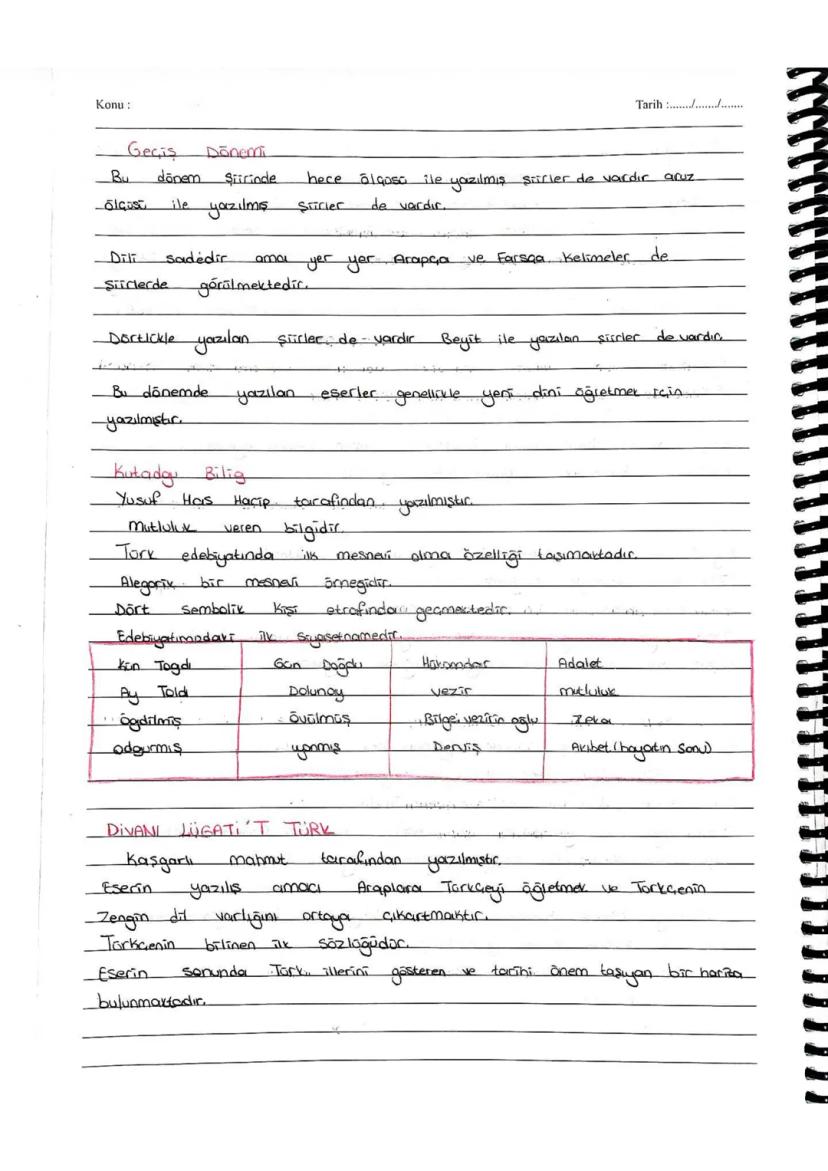 Konu :
Tarih :......./......./.......
Geçiş Dönemi
Bu dönem şiirinde hece ölçüsü ile yazılmış şiirler de vardır aruz
ölçüsü ile yazılmış şiirler de vardır.
Dili sadedir ama yer yer Arapça ve Farsça kelimeler de
şiirlerde görülmektedir.
Dörtlükle yazılan şiirler de vardır Beyit ile yazılan şiirler de vardır.
Bu dönemde yazılan eserler genellikle yeni dini öğretmek için
yazılmıştır.
Kutadgu Bilig
Yusuf Has Hacip tarafından yazılmıştır.
Mutluluk veren bilgidir.
Türk edebiyatında ilk mesnevi olma özelliği taşımaktadır.
Alegorik bir mesnevi örneğidir.
Dört sembolik kişi etrafında geçmektedir.
Edebiyatımızdaki ilk siyasetnamedir.
Kün Togdı Gün Doğdu Hükümdar Adalet
Ay Told Dolunay vezir mutluluk
ögdilmiş övülmüş Bilge: vezirin oğlu zeka
odgurmış yanmış Derviş Akıbet (hayatın sonu)
DİVANI LÜGATİ'T TÜRK
Kaşgarlı mahmut tarafından yazılmıştır.
Eserin yazılış amacı Araplara Türkçeyi öğretmek ve Türkçenin
Zengin dil varlığını ortaya çıkartmaktır.
Türkçenin bilinen ilk sözlüğüdür.
Eserin sonunda Türk illerini gösteren ve tarihi önem taşıyan bir harita
bulunmaktadır.